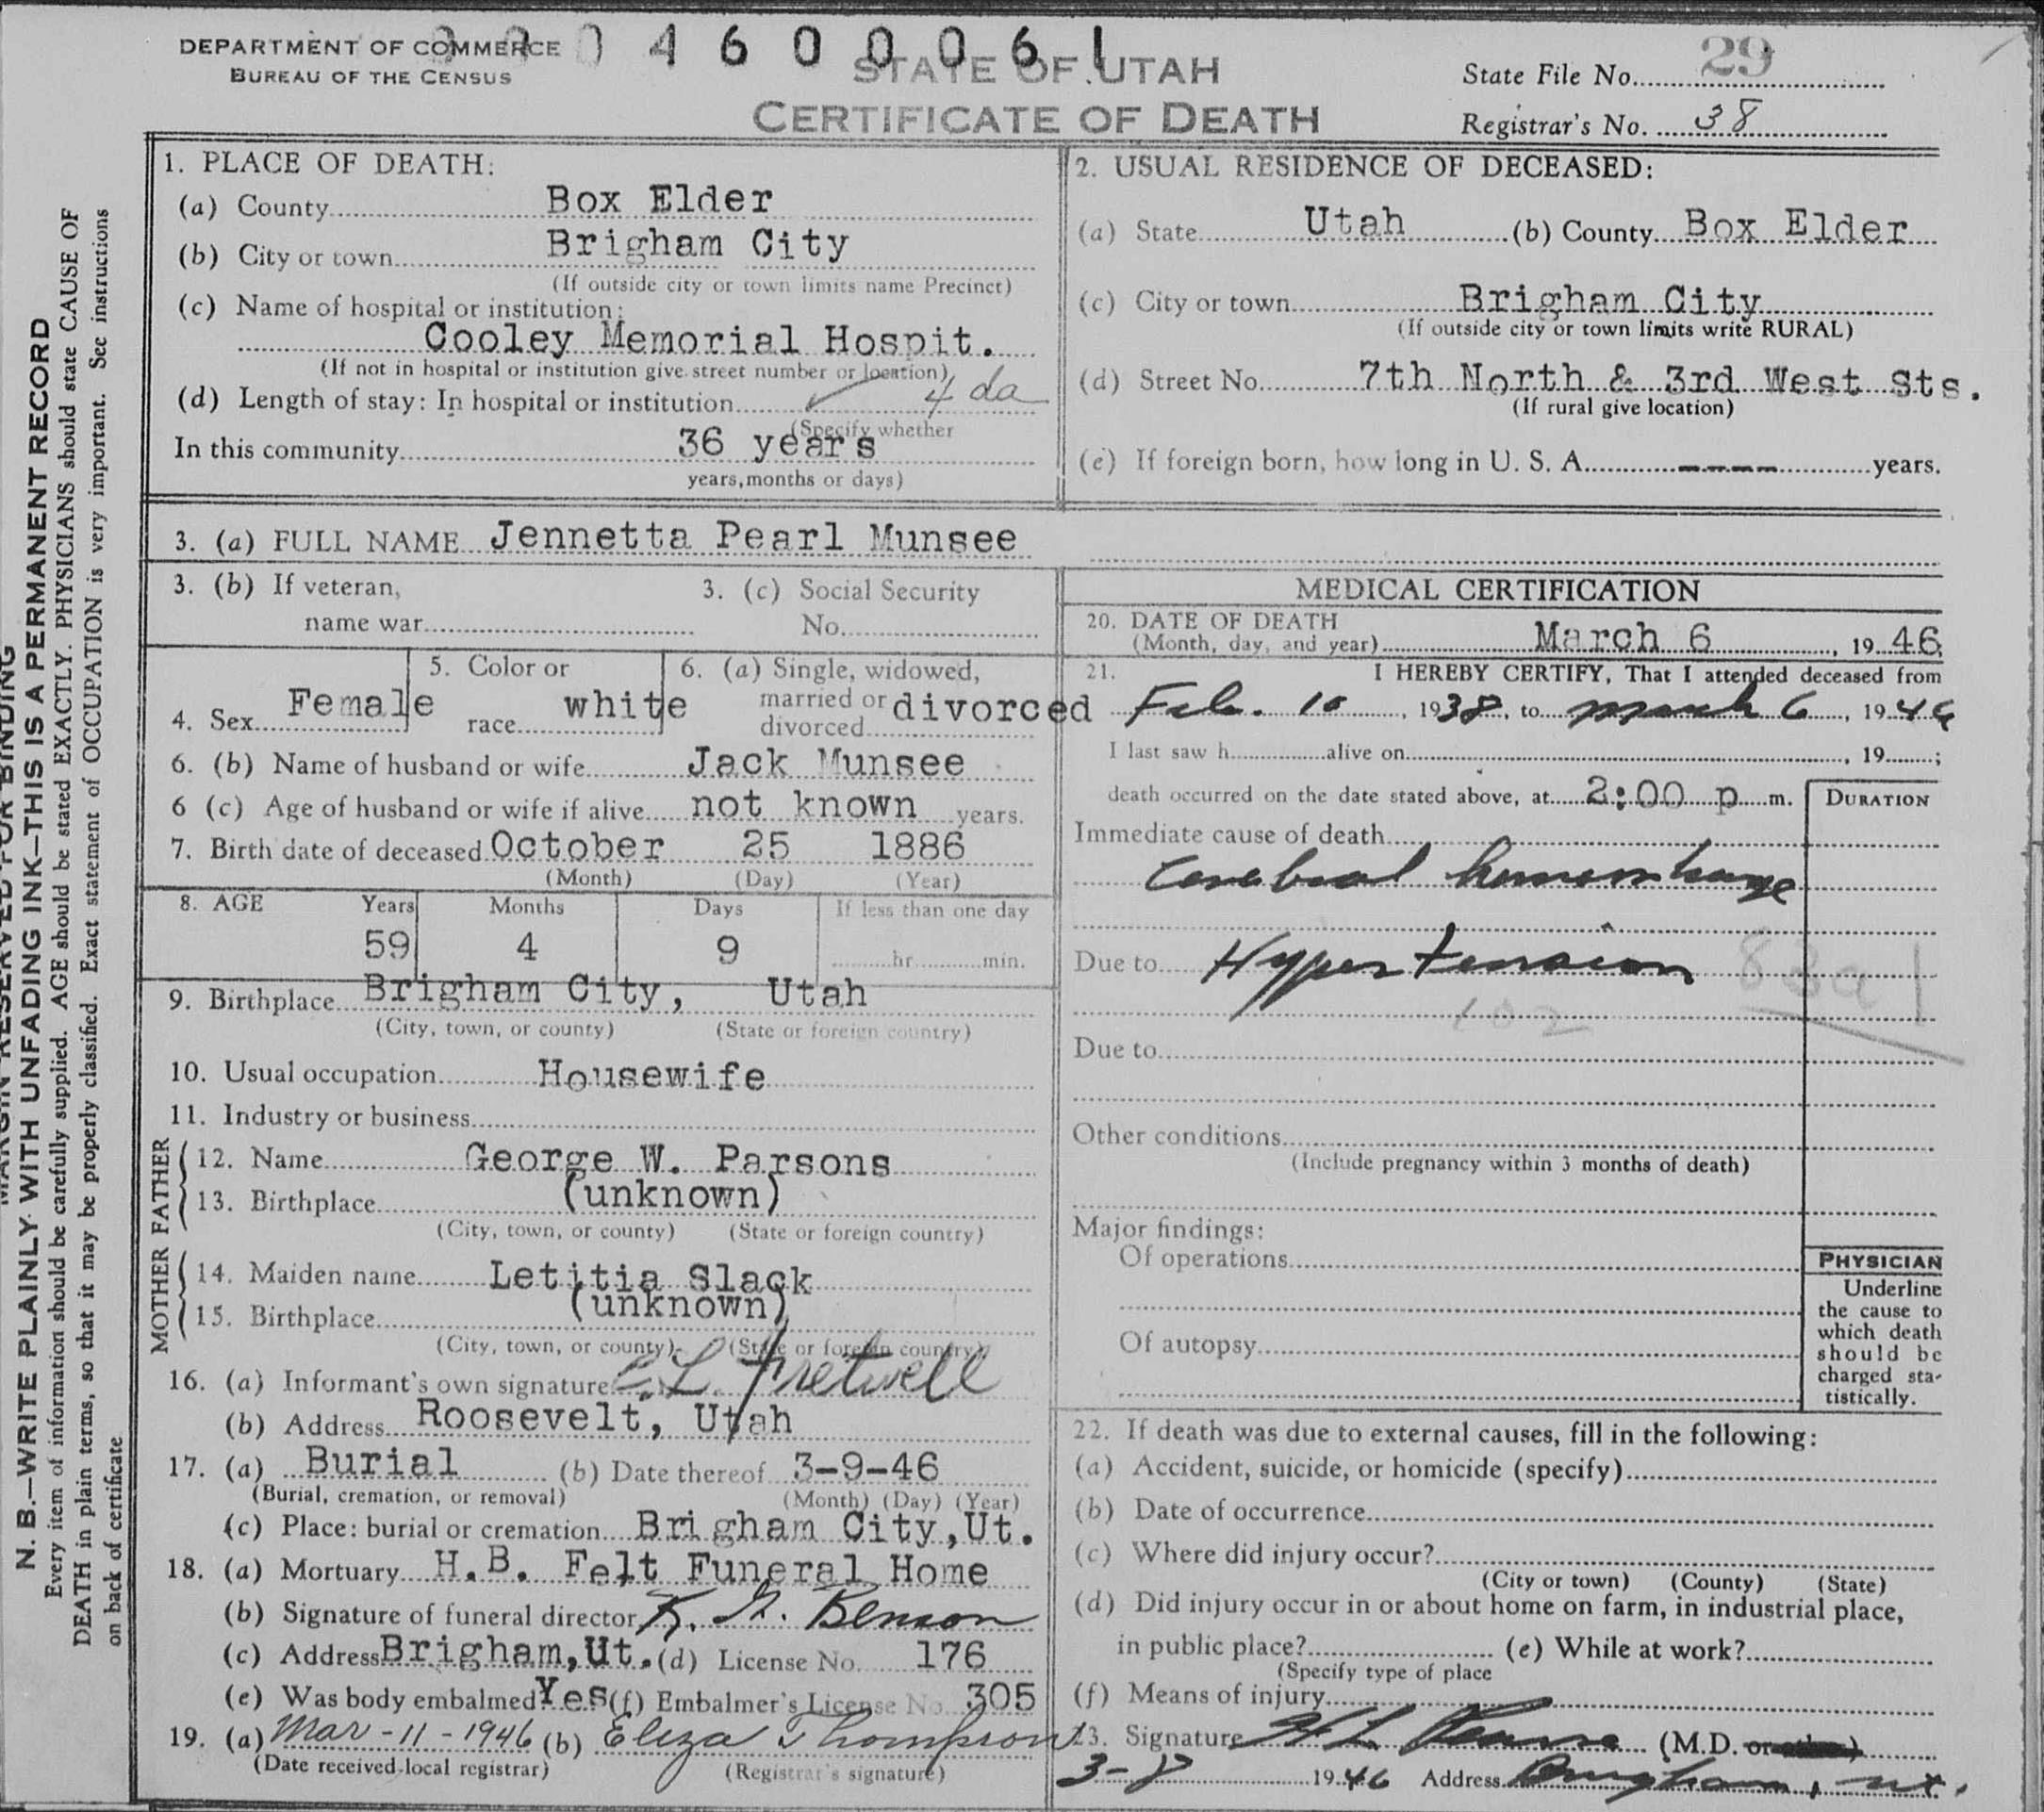 DEPARTMENT OF COMMERCE
BUREAU OF THE CENSUS
460061
STATE OF UTAH
CERTIFICATE OF DEATH
State File No. 29
Registrar's No. 38
N. B.—WRITE PLAINLY WITH UNFADING INK—THIS IS A PERMANENT RECORD
Every item of information should be carefully supplied. AGE should be stated EXACTLY. PHYSICIANS should state CAUSE OF
DEATH in plain terms, so that it may be properly classified. Exact statement of OCCUPATION is very important. See instructions
on back of certificate
1. PLACE OF DEATH:
(a) County Box Elder
(b) City or town Brigham City
(If outside city or town limits name Precinct)
(c) Name of hospital or institution:
Cooley Memorial Hospit.
(If not in hospital or institution give street number or location)
(d) Length of stay: In hospital or institution ✓ 4 da
(Specify whether
In this community 36 years
years, months or days)
2. USUAL RESIDENCE OF DECEASED:
(a) State Utah (b) County Box Elder
(c) City or town Brigham City
(If outside city or town limits write RURAL)
(d) Street No. 7th North & 3rd West Sts.
(If rural give location)
(e) If foreign born, how long in U. S. A. ---- years.
3. (a) FULL NAME Jennetta Pearl Munsee
3. (b) If veteran,
name war
3. (c) Social Security
No.
4. Sex Female
5. Color or
race white
6. (a) Single, widowed,
married or
divorced divorced
6. (b) Name of husband or wife Jack Munsee
6 (c) Age of husband or wife if alive not known years.
7. Birth date of deceased October 25 1886
(Month) (Day) (Year)
8. AGE Years Months Days If less than one day
59 4 9 hr. min.
9. Birthplace Brigham City, Utah
(City, town, or county) (State or foreign country)
10. Usual occupation Housewife
11. Industry or business
FATHER
12. Name George W. Parsons
13. Birthplace (unknown)
(City, town, or county) (State or foreign country)
MOTHER
14. Maiden name Letitia Slack
15. Birthplace (unknown)
(City, town, or county) (State or foreign country)
16. (a) Informant's own signature C. L. Fretwell
(b) Address Roosevelt, Utah
17. (a) Burial (b) Date thereof 3-9-46
(Burial, cremation, or removal) (Month) (Day) (Year)
(c) Place: burial or cremation Brigham City, Ut.
18. (a) Mortuary H. B. Felt Funeral Home
(b) Signature of funeral director Benson
(c) Address Brigham, Ut. (d) License No. 176
(e) Was body embalmed Yes (f) Embalmer's License No. 305
19. (a) Mar-11-1946 (b) Eliza Thompson
(Date received local registrar) (Registrar's signature)
MEDICAL CERTIFICATION
20. DATE OF DEATH
(Month, day, and year) March 6, 1946
21. I HEREBY CERTIFY, That I attended deceased from
Feb. 10, 1938, to March 6, 1946
I last saw h alive on , 19 ;
death occurred on the date stated above, at 2:00 p m.
DURATION
Immediate cause of death
Cerebral hemorrhage
Due to Hypertension
83a 1
102
Due to
Other conditions
(Include pregnancy within 3 months of death)
Major findings:
Of operations
Of autopsy
PHYSICIAN
Underline
the cause to
which death
should be
charged sta-
tistically.
22. If death was due to external causes, fill in the following:
(a) Accident, suicide, or homicide (specify)
(b) Date of occurrence
(c) Where did injury occur?
(City or town) (County) (State)
(d) Did injury occur in or about home on farm, in industrial place,
in public place? (e) While at work?
(Specify type of place
(f) Means of injury
23. Signature (M.D. or
3-8 1946 Address Brigham, Ut.